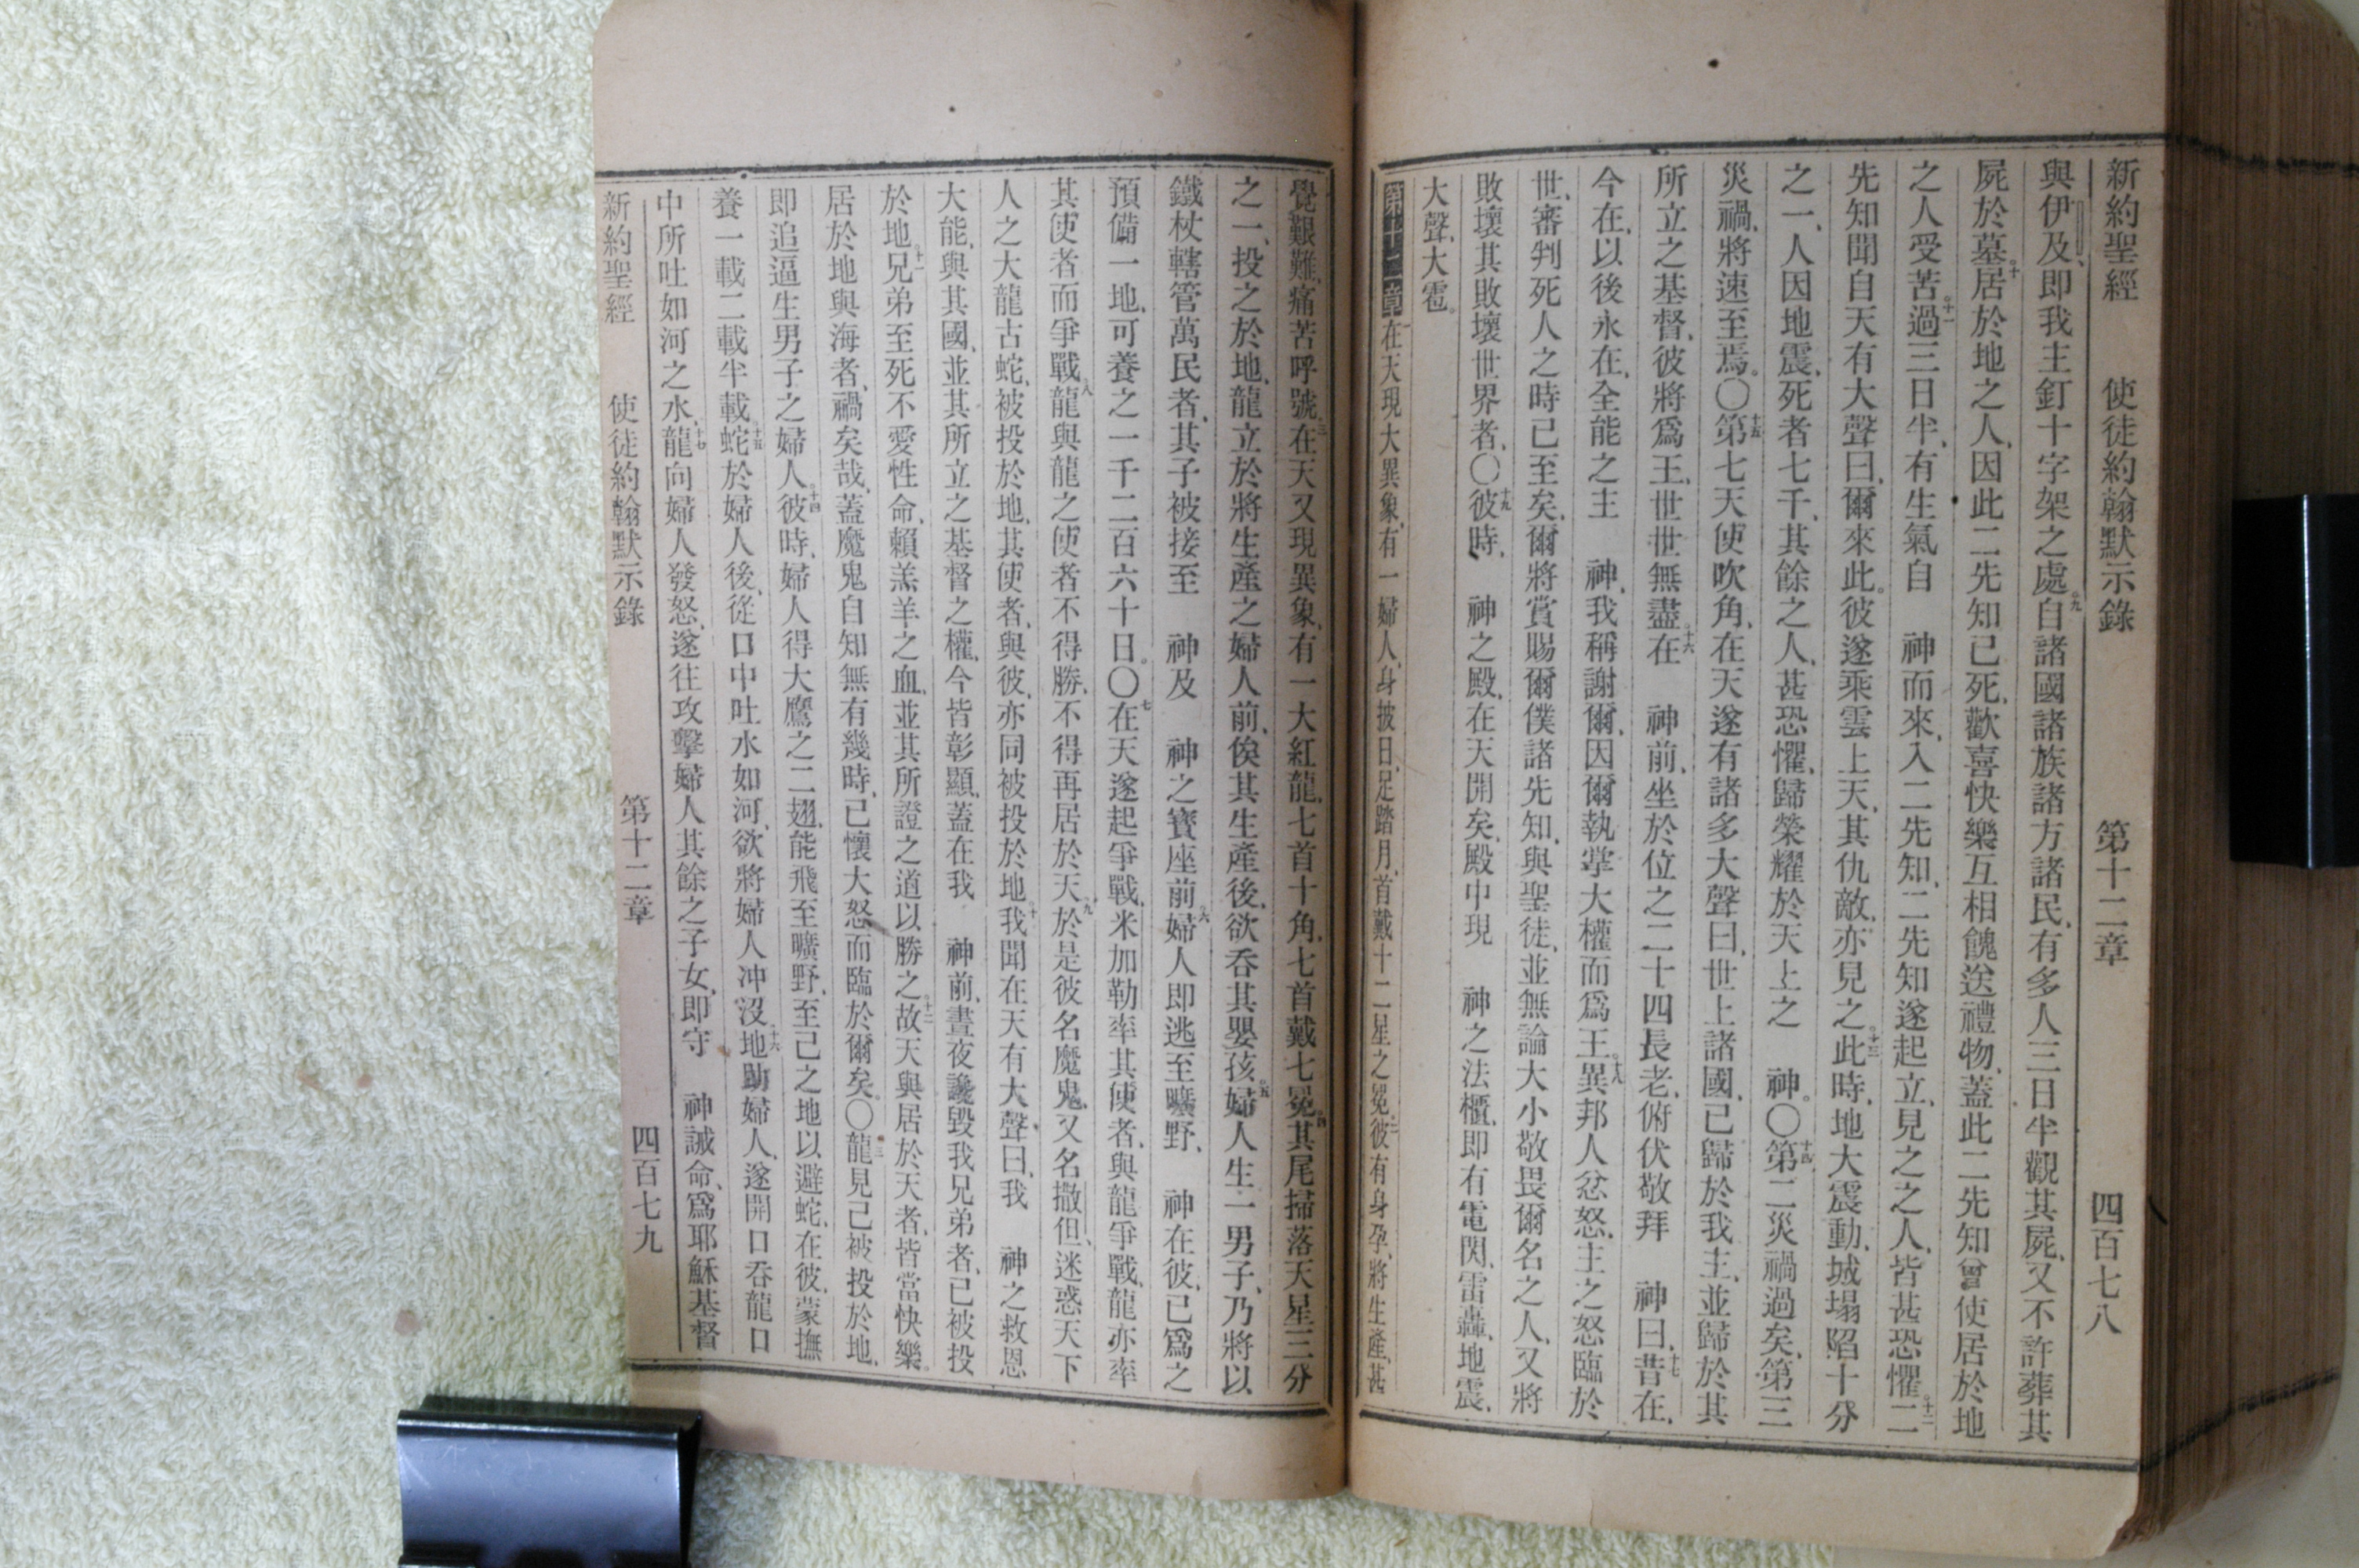 新約聖經 使徒約翰默示錄 第十二章 四百七八
與伊及、卽我主釘十字架之處。九自諸國諸族諸方諸民、有多人三日半觀其屍、又不許葬其
屍於墓。十居於地之人、因此二先知已死、歡喜快樂、互相餽送禮物、蓋此二先知曾使居於地
之人受苦。十一過三日半、有生氣自 神而來、入二先知、二先知遂起立、見之之人、皆甚恐懼。十二二
先知聞自天有大聲曰、爾來此。彼遂乘雲上天、其仇敵、亦見之。十三此時、地大震動、城塌陷十分
之一、人因地震、死者七千、其餘之人、甚恐懼、歸榮耀於天上之 神。〇十四第二災禍過矣、第三
災禍、將速至焉。〇十五第七天使吹角、在天遂有諸多大聲曰、世上諸國、已歸於我主、並歸於其
所立之基督、彼將爲王、世世無盡。十六在 神前、坐於位之二十四長老、俯伏敬拜 神曰、十七昔在、
今在、以後永在、全能之主 神、我稱謝爾、因爾執掌大權而爲王。十八異邦人忿怒、主之怒臨於
世、審判死人之時已至矣、爾將賞賜爾僕諸先知、與聖徒、並無論大小敬畏爾名之人、又將
敗壞其敗壞世界者、〇十九彼時、 神之殿、在天開矣、殿中現 神之法櫃、卽有電閃、雷轟、地震、
大聲、大雹。
第十二章 一在天現大異象、有一婦人、身披日、足踏月、首戴十二星之冕、二彼有身孕、將生產、甚
覺艱難、痛苦呼號。三在天又現異象、有一大紅龍、七首十角、七首戴七冕。四其尾掃落天星三分
之一、投之於地、龍立於將生產之婦人前、俟其生產後、欲吞其嬰孩。五婦人生一男子、乃將以
鐵杖轄管萬民者、其子被接至 神及 神之寶座前。六婦人卽逃至曠野、 神在彼、已爲之
預備一地、可養之一千二百六十日。〇七在天遂起爭戰、米加勒率其使者、與龍爭戰、龍亦率
其使者而爭戰、八龍與龍之使者不得勝、不得再居於天、九於是彼名魔鬼、又名撒但、迷惑天下
人之大龍古蛇、被投於地、其使者、與彼、亦同被投於地。十我聞在天有大聲曰、我 神之救恩
大能、與其國、並其所立之基督之權、今皆彰顯、蓋在我 神前、晝夜讒毀我兄弟者、已被投
於地。十一兄弟至死不愛性命、賴羔羊之血、並其所證之道以勝之。十二故天與居於天者、皆當快樂。
居於地與海者、禍矣哉、蓋魔鬼自知無有幾時、已懷大怒而臨於爾矣。〇十三龍見己被投於地、
卽追逼生男子之婦人。十四彼時、婦人得大鷹之二翅、能飛至曠野、至己之地以避蛇、在彼、蒙撫
養一載二載半載。十五蛇於婦人後、從口中吐水如河、欲將婦人冲沒。十六地助婦人、遂開口吞龍口
中所吐如河之水、十七龍向婦人發怒、遂往攻擊婦人其餘之子女、卽守 神誡命、爲耶穌基督
新約聖經 使徒約翰默示錄 第十二章 四百七九